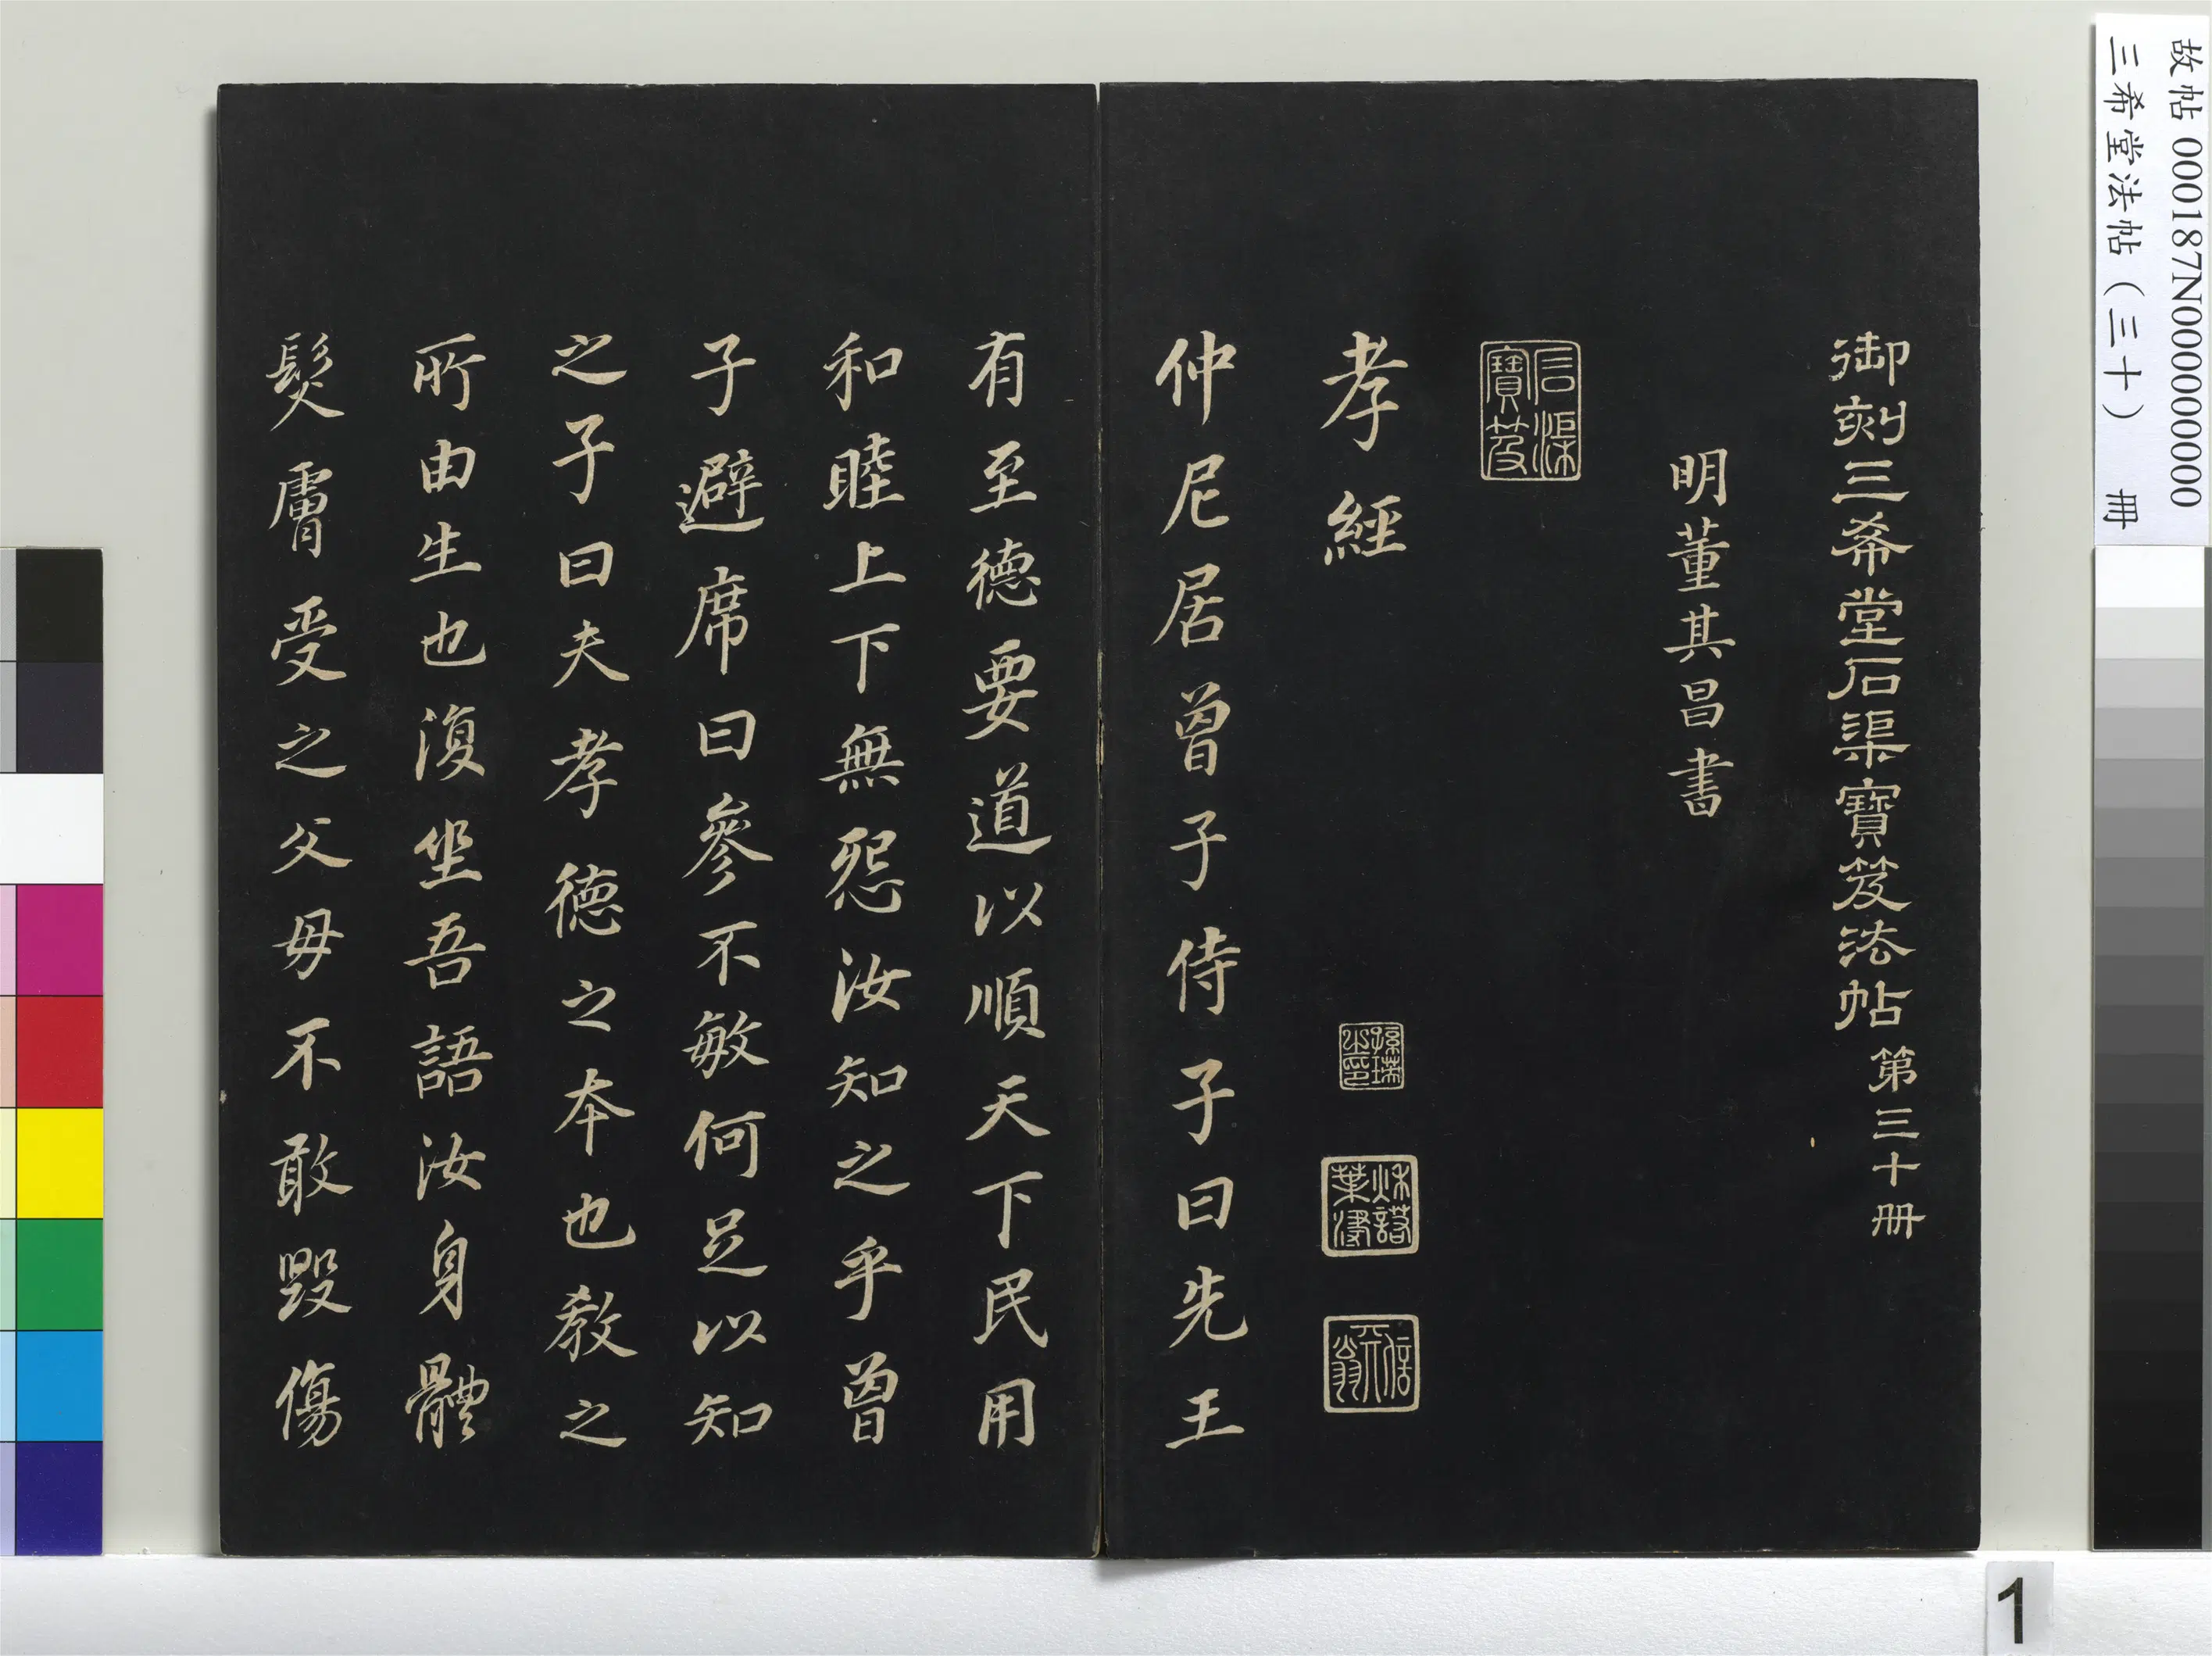 故帖 000187N000000000
三希堂法帖（三十） 冊
御刻三希堂石渠寶笈法帖 第三十冊
明董其昌書
石渠寶笈
孝經
仲尼居曾子侍子曰先王
有至德要道以順天下民用
和睦上下無怨汝知之乎曾
子避席曰參不敏何足以知
之子曰夫孝德之本也教之
所由生也復坐吾語汝身體
髮膚受之父母不敢毀傷
1